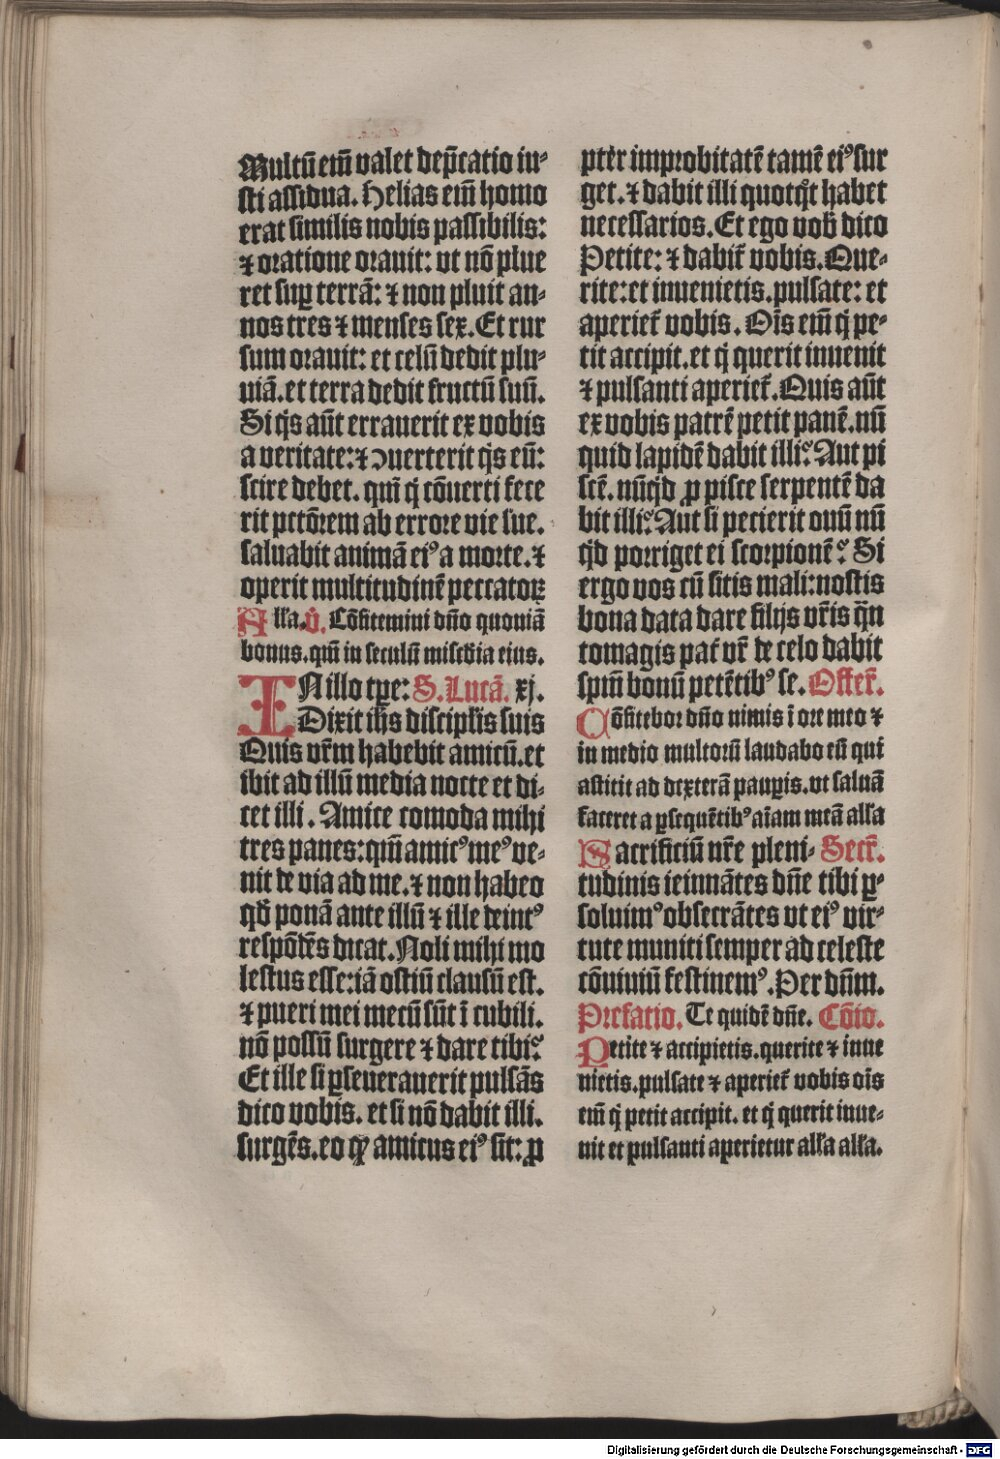 Multū em̄ valet dep̄catio iu-
sti assidua. Helias em̄ homo
erat similis nobis passibilis:
⁊ oratione orauit: vt nō plue
ret suꝑ terrā: ⁊ non pluit an-
nos tres ⁊ menses sex. Et rur
sum orauit: et celū dedit plu-
uiā. et terra dedit fructū suū.
Si q̄s aūt errauerit ex vobis
a veritate: ⁊ ↄuerterit q̄s eū:
scire debet. qm̄ q̄ cōuerti fece
rit pctōrem ab errore vie sue.
saluabit animā eiꝰ a morte. ⁊
operit multitudinē peccatoꝝ
Alla. v̄. Cōfitemini dn̄o quoniā
bonus. qm̄ in seculū miscd̄ia eius.
IN illo tꝑe: S. Lucā. xj.
Dixit ih̄s discipl̄is suis
Quis vr̄m habebit amicū. et
ibit ad illū media nocte et di-
cet illi. Amice comoda mihi
tres panes: qm̄ amicꝰ meꝰ ve-
nit de via ad me. ⁊ non habeo
qd̄ ponā ante illū ⁊ ille deintꝰ
respōdēs dicat. Noli mihi mo
lestus esse: iā ostiū clausū est.
⁊ pueri mei mecū sūt ī cubili.
nō possū surgere ⁊ dare tibi?
Et ille si ꝑseuerauerit pulsās
dico vobis. et si nō dabit illi.
surgēs. eo ꝙ amicus eiꝰ sit: ꝓ
pter improbitatē tamē eiꝰ sur
get. ⁊ dabit illi quotq̄t habet
necessarios. Et ego vob̄ dico
Petite: ⁊ dabit̄ vobis. Que-
rite: et inuenietis. pulsate: et
aperiet̄ vobis. Oīs em̄ q̄ pe-
tit accipit. et q̄ querit inuenit
⁊ pulsanti aperiet̄. Quis aūt
ex vobis patrē petit panē. nū
quid lapidē dabit illi? Aut pi
scē. nūq̄d ꝓ pisce serpentē da
bit illi? Aut si pecierit ouū nū
q̄d porriget ei scorpionē? Si
ergo vos cū sitis mali: nostis
bona data dare filijs vr̄is q̄n
tomagis pat̄ vr̄ de celo dabit
spm̄ bonū petētibꝰ se. Offer̄.
Cōfitebor dn̄o nimis ī ore meo ⁊
in medio multorū laudabo eū qui
astitit ad dexterā pauꝑis. vt saluā
faceret a ꝑsequētibꝰ aīam meā alla
Sacrificiū nr̄e pleni- Secr̄.
tudinis ieiunātes dn̄e tibi ꝑ-
soluimꝰ obsecrātes vt eiꝰ vir-
tute muniti semper ad celeste
cōuiuiū festinemꝰ. Per dn̄m.
Prefatio. Te quidē dn̄e. Cōio.
Petite ⁊ accipietis. querite ⁊ inue
nietis. pulsate ⁊ aperiet̄ vobis oīs
em̄ q̄ petit accipit. et q̄ querit inue-
nit et pulsanti aperietur alla alla.
Digitalisierung gefördert durch die Deutsche Forschungsgemeinschaft - DFG